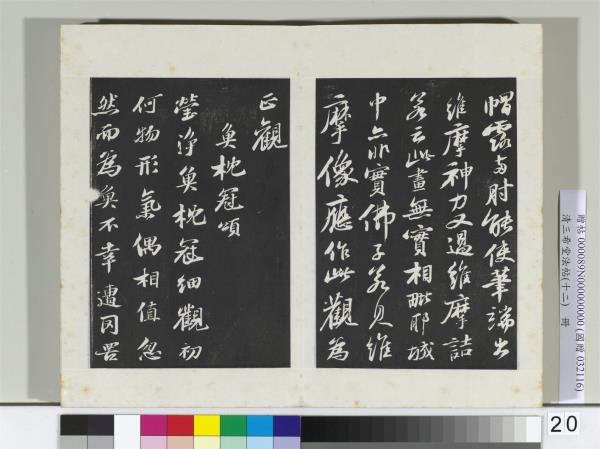 帽露兩肘能使筆端出
維摩神力又過維摩詰
若云此畫無實相毗耶城
中亦非實佛子若見維
摩像應作此觀為
正觀
魚枕冠頌
瑩淨魚枕冠細觀初
何物形氣偶相值忽
然而為魚不幸遭罔罟
贈帖 000089N000000000 (國贈 032116)
清三希堂法帖(十二) 冊
20